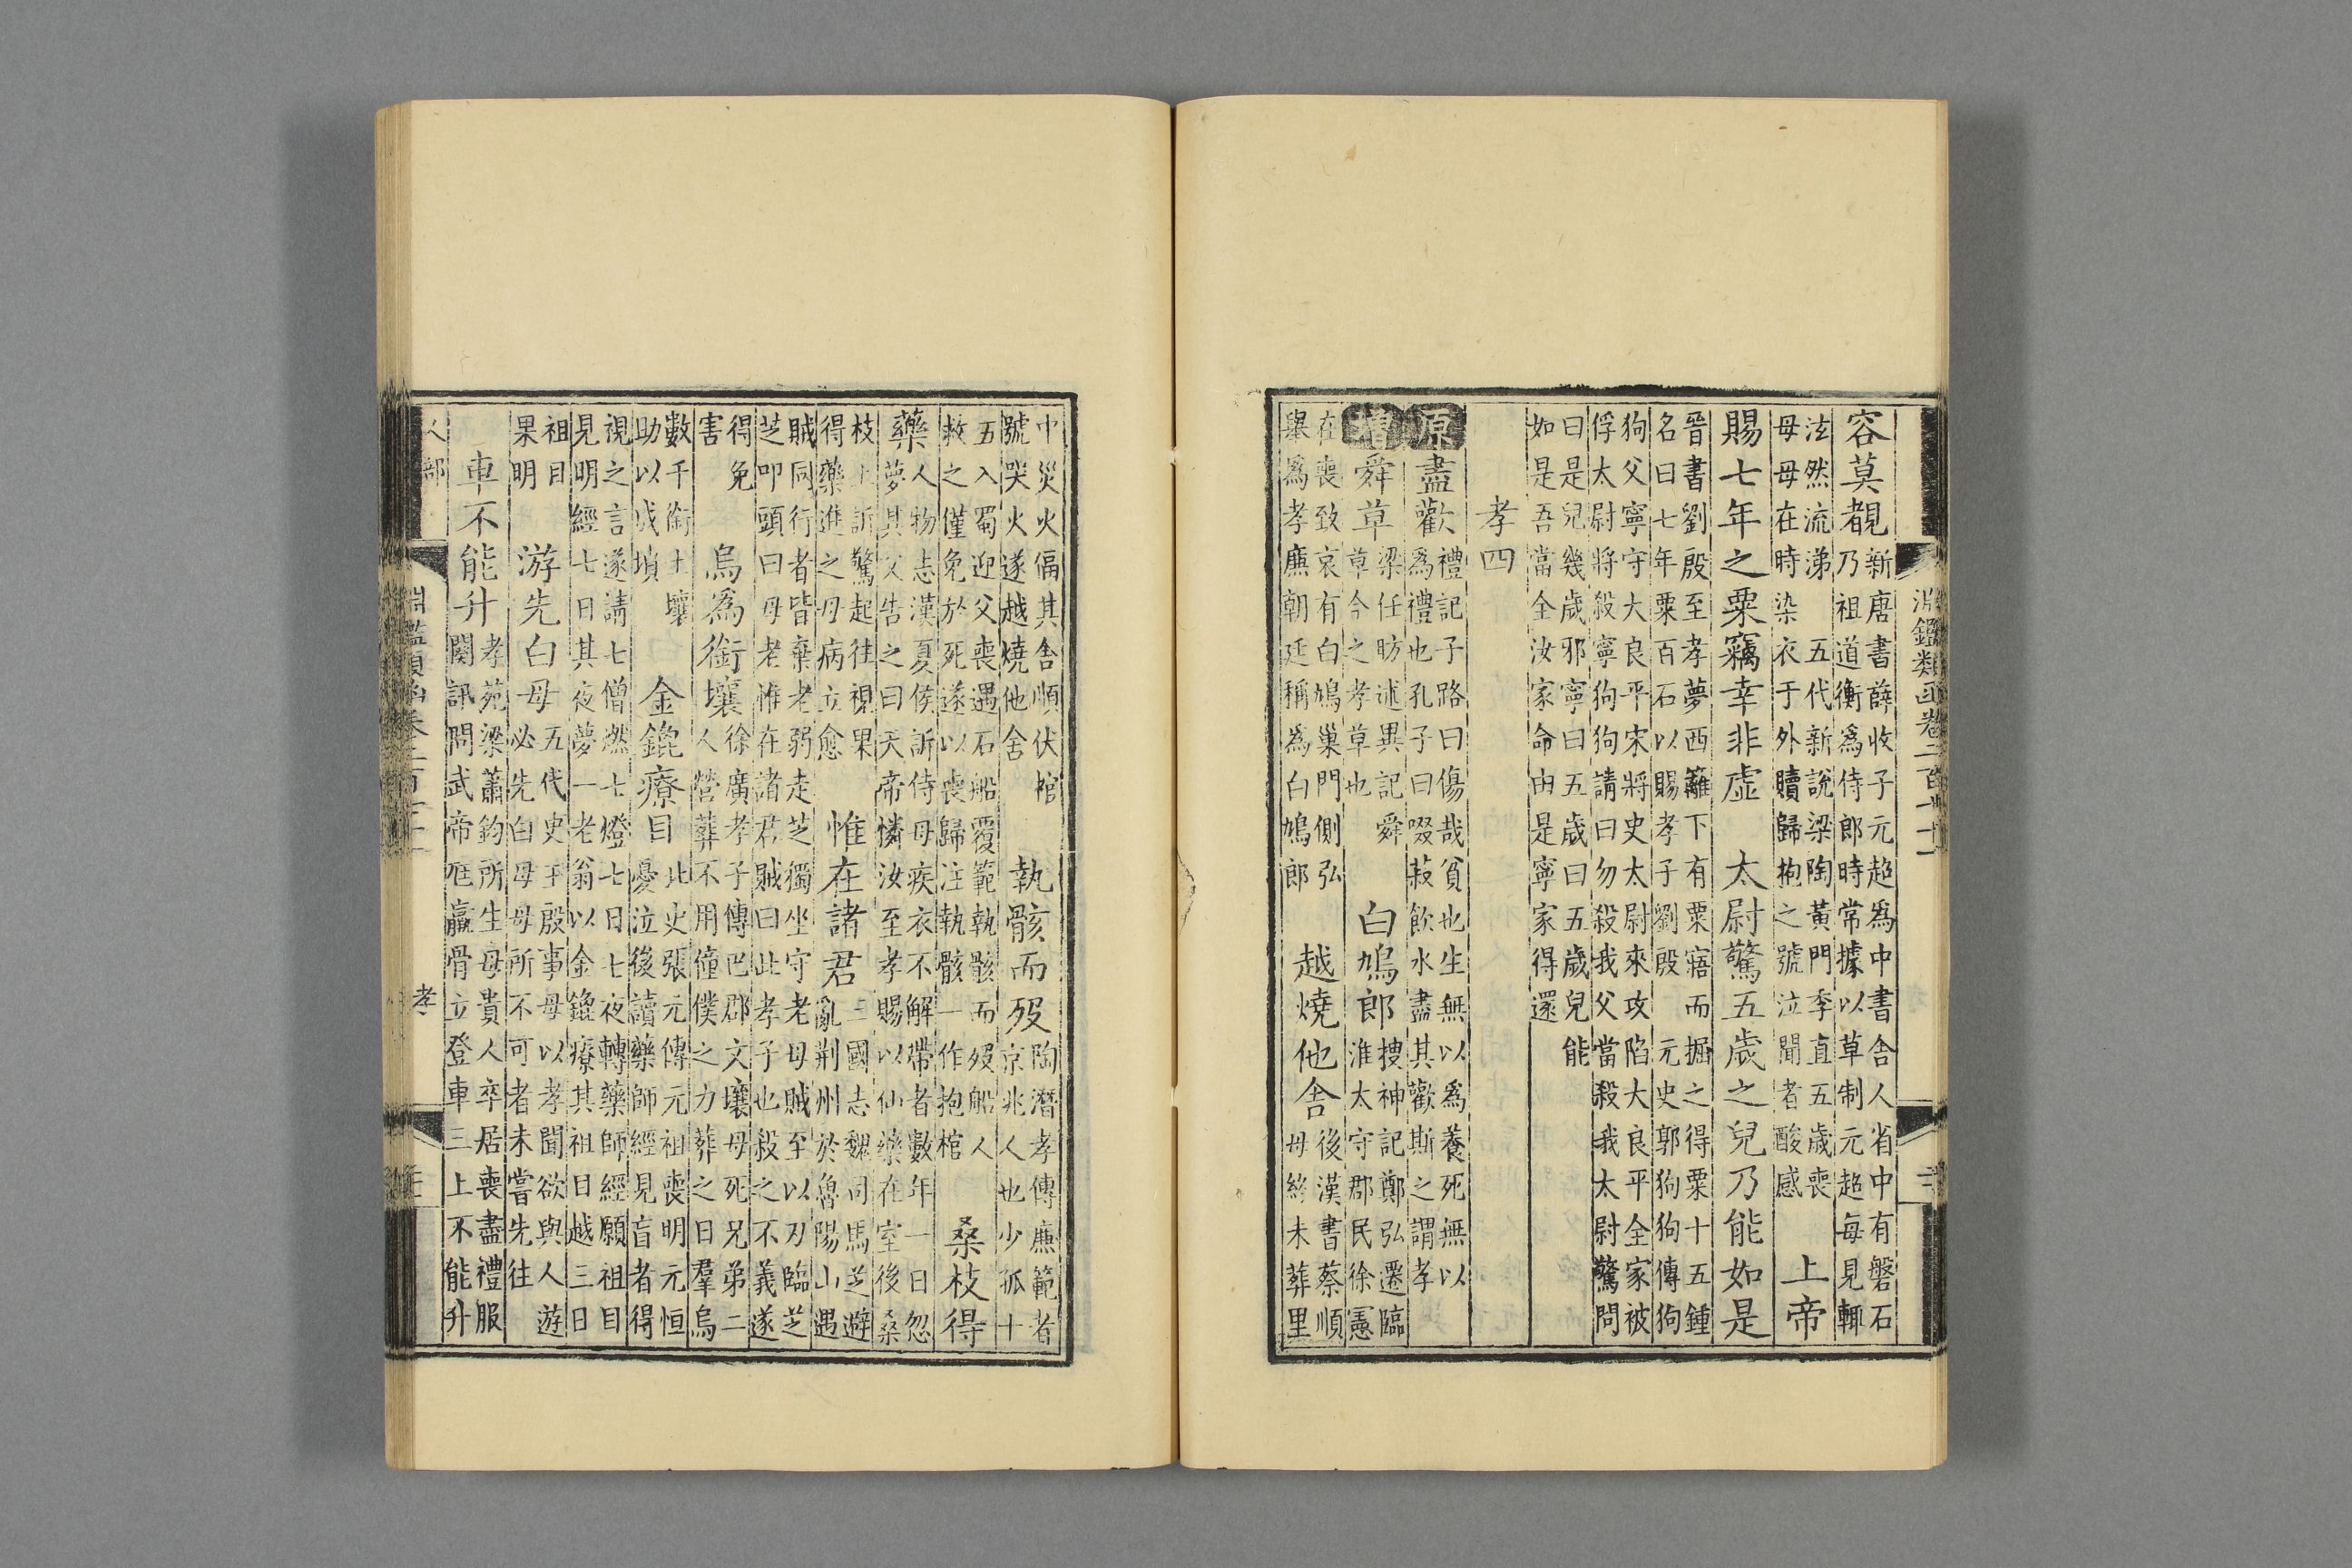 淵鑑類函卷二百七十一
容莫覩
新唐書薛收子元超爲中書舍人省中有磐石
乃祖道衡爲侍郎時常據以草制元超每見輒
泫然流涕　五代新說梁陶黃門季直五歲喪
母母在時染衣于外贖歸抱之號泣聞者酸感
上帝
賜七年之粟竊幸非虛　太尉驚五歲之兒乃能如是
晉書劉殷至孝夢西籬下有粟寤而掘之得粟十五鍾
名曰七年粟百石以賜孝子劉殷　元史郭狗狗傳狗
狗父寧守大良平宋將史太尉來攻陷大良平全家被
俘太尉將殺寧狗狗請曰勿殺我父當殺我太尉驚問
曰是兒幾歲邪寧曰五歲曰五歲兒能
如是吾當全汝家命由是寧家得還
孝四
原盡歡
禮記子路曰傷哉貧也生無以爲養死無以
爲禮也孔子曰啜菽飲水盡其歡斯之謂孝
增舜草
梁任昉述異記舜
草今之孝草也
白鳩郎
搜神記鄭弘遷臨
淮太守郡民徐憲
在喪致哀有白鳩巢門側弘
舉爲孝廉朝廷稱爲白鳩郎
越燒他舍
後漢書蔡順
母終未葬里
中災火偪其舍順伏棺
號哭火遂越燒他舍
執骸而歿
陶潛孝傳廉範者
京兆人也少孤十
五入蜀迎父喪遇石船覆範執骸而歿船人
救之僅免於死遂以喪歸注執骸一作抱棺
桑枝得
藥
人物志漢夏侯訢侍母疾衣不解帶者數年一日忽
夢其父告之曰天帝憐汝至孝賜以仙藥在室後桑
枝上訢驚起往視果
得藥進之母病立愈
惟在諸君
三國志魏司馬芝避
亂荆州於魯陽山遇
賊同行者皆棄老弱走芝獨坐守老母賊至以刃臨芝
芝叩頭曰母老惟在諸君賊曰此孝子也殺之不義遂
得免
害
烏爲銜壤
徐廣孝子傳巴郡文壤母死兄弟二
人營葬不用僮僕之力葬之日羣烏
數千銜土壤
助以成墳
金錍療目
北史張元傳元祖喪明元恒
憂泣後讀藥師經見盲者得
視之言遂請七僧燃七燈七日七夜轉藥師經願祖目
見明經七日其夜夢一老翁以金錍療其祖目越三日
祖目
果明
游先白母
五代史王殷事母以孝聞欲與人游
必先白母母所不可者未嘗先往
車不能升
孝苑梁蕭鈞所生母貴人卒居喪盡禮服
闋訊問武帝尫羸骨立登車三上不能升
人部
淵鑑類函卷二百七十一
孝